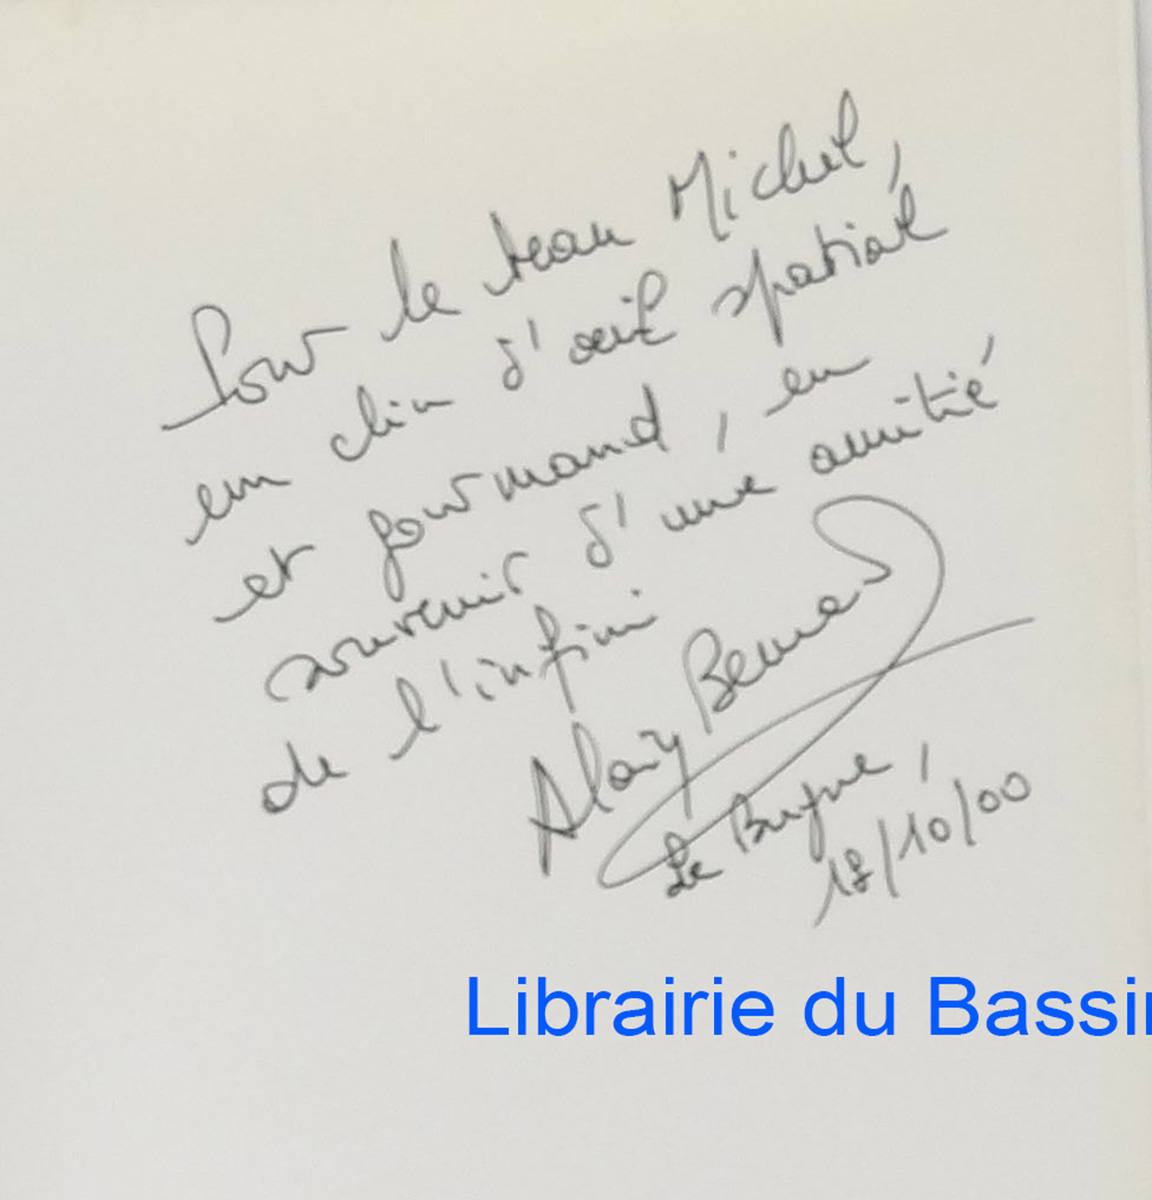 Pour le beau Michel,
un clin d'oeil spatial
et gourmand, en
souvenir d'une amitié
de l'infini
Alain
Le
17/10/00
Librairie du Bassin